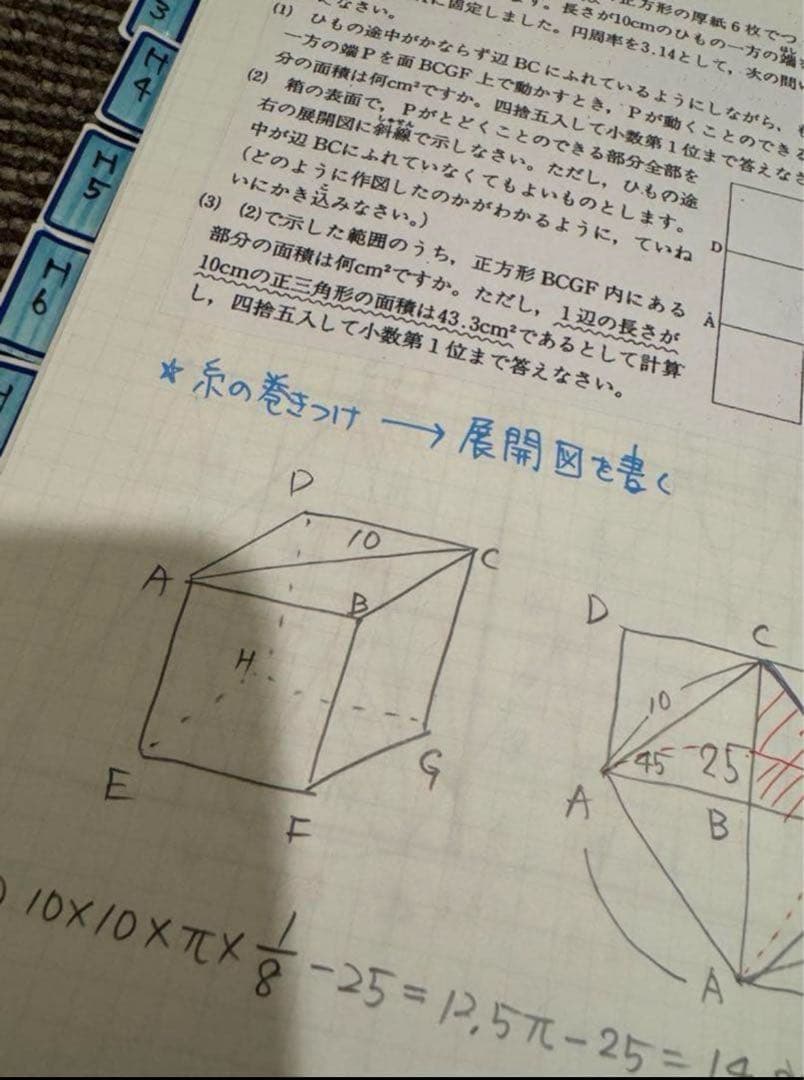 3
H
4
H
5
H
6
正方形の厚紙6枚でつ
に固定しました。円周率を3.14として、次の問い
す。長さが10cmのひもの一方の端
えなさい。
(1) ひもの途中がかならず辺BCにふれているようにしながら、
一方の端Pを面BCGF上で動かすとき、Pが動くことのできる
分の面積は何cm²ですか。四捨五入して小数第1位まで答えなさ
(2) 箱の表面で、Pがとどくことのできる部分全部を
右の展開図に斜線で示しなさい。ただし、ひもの途
中が辺BCにふれていなくてもよいものとします。
(どのように作図したのかがわかるように、ていね
いにかき込みなさい。)
(3) (2)で示した範囲のうち、正方形BCGF内にある
部分の面積は何cm²ですか。ただし、1辺の長さが
10cmの正三角形の面積は43.3cm²であるとして計算
し、四捨五入して小数第1位まで答えなさい。
D
A
☆ 糸の巻きつけ → 展開図を書く
D
10
A
C
B
H
G
E
F
D
C
10
45
25
A
B
A
) 10×10×π×1/8-25=12.5π-25=14